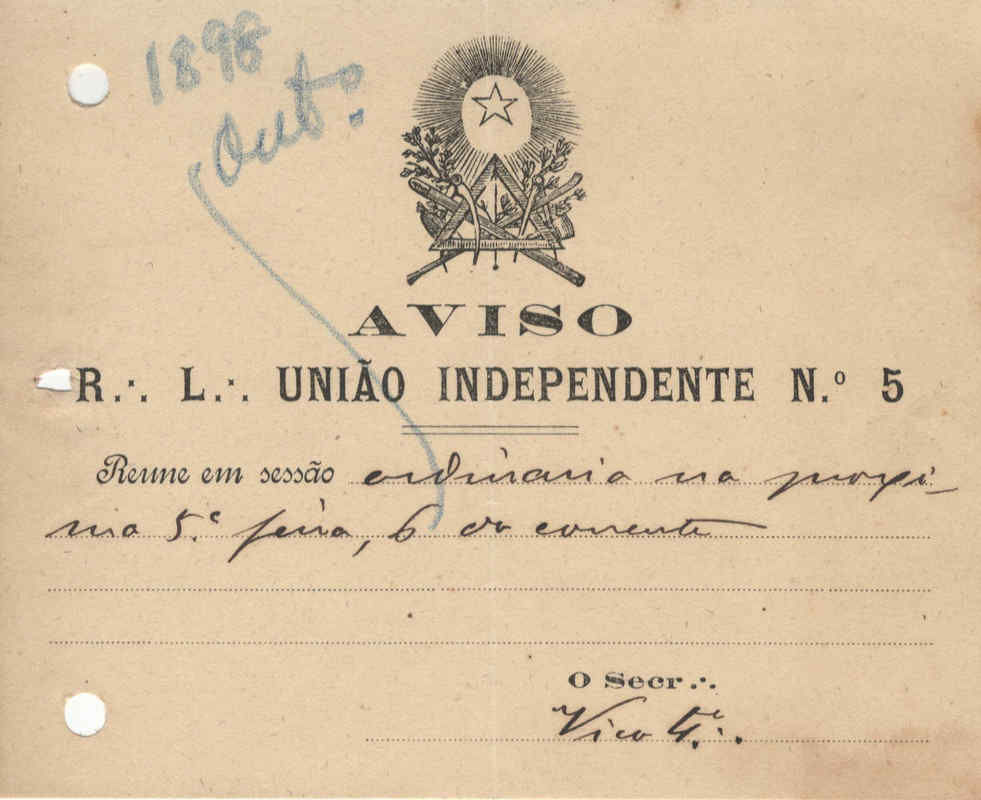 1898
Out.º
AVISO
R.∴ L.∴ UNIÃO INDEPENDENTE N.º 5
Reune em sessão ordinaria na proxi-
ma 5.ª feira, 6 do corrente
O Secr.∴
Vico